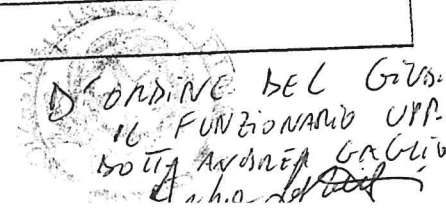 D'ORDINE DEL GIUD.
IL FUNZIONARIO UPP.
DOTT. ANDREA GAGLIO